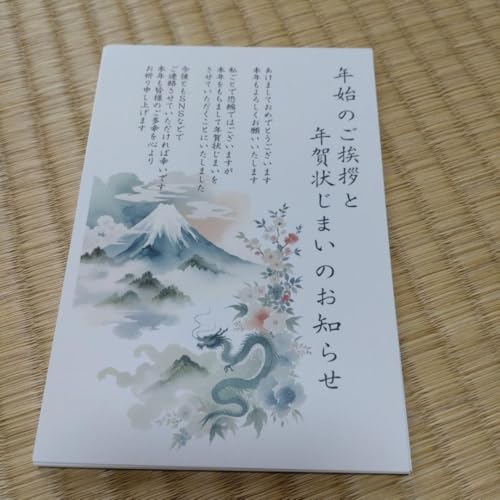 年始のご挨拶と
年賀状じまいのお知らせ
あけましておめでとうございます
本年もよろしくお願いいたします
私ごとで恐縮ではございますが
本年をもちまして年賀状じまいを
させていただくことにいたしました
今後ともSNSなどで
ご連絡させていただければ幸いです
本年も皆様のご多幸を心より
お祈り申し上げます